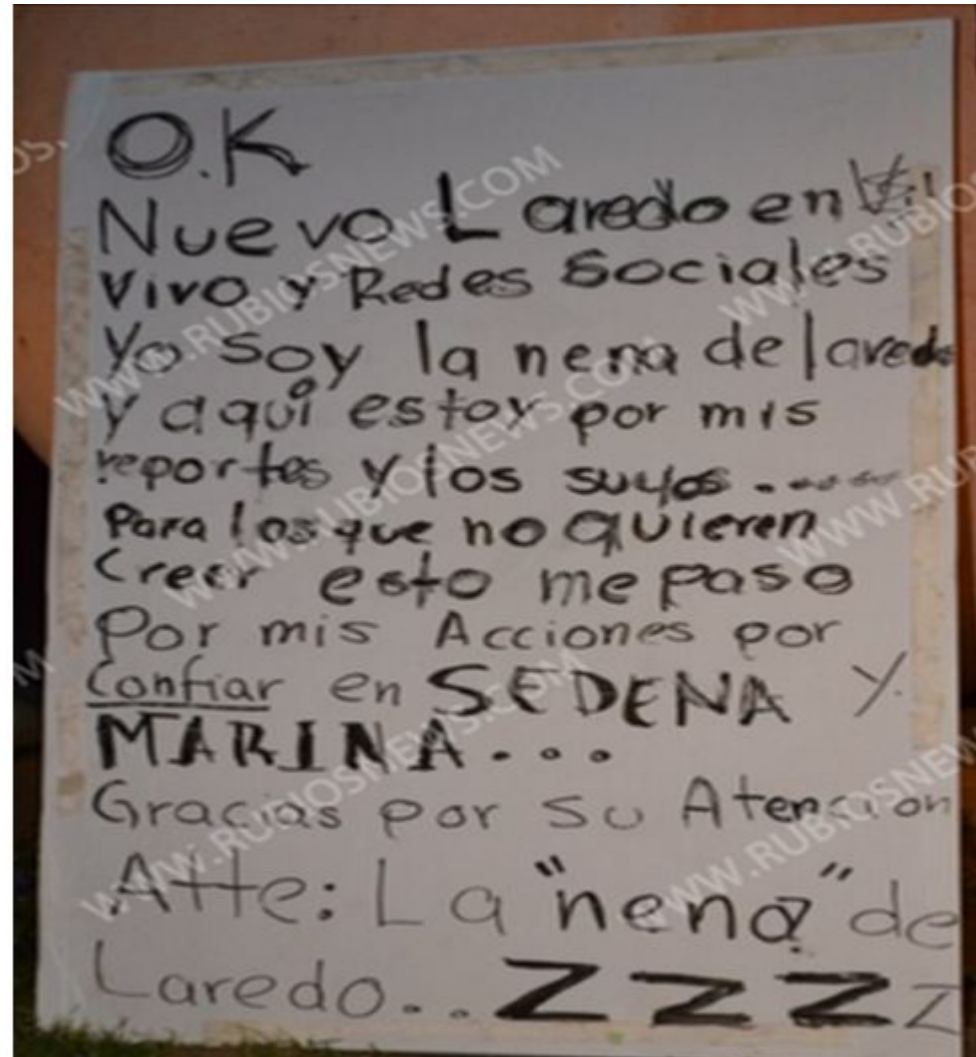 O.K
Nuevo Laredo en
Vivo y Redes Sociales
Yo Soy la nena de laredo
y aqui estoy por mis
reportes y los suyos.....
Para los que no quieren
Creer esto me paso
Por mis Acciones por
Confiar en SEDENA y.
MARINA...
Gracias por su Atencion
Atte: La "nena" de
Laredo..ZZZZ
WWW.RUBIOSNEWS.COM